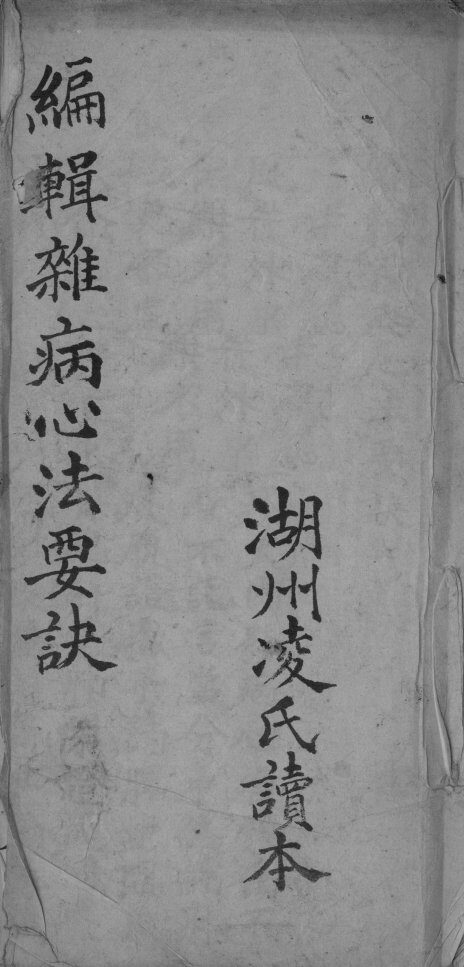 編輯雜病心法要訣
湖州凌氏讀本